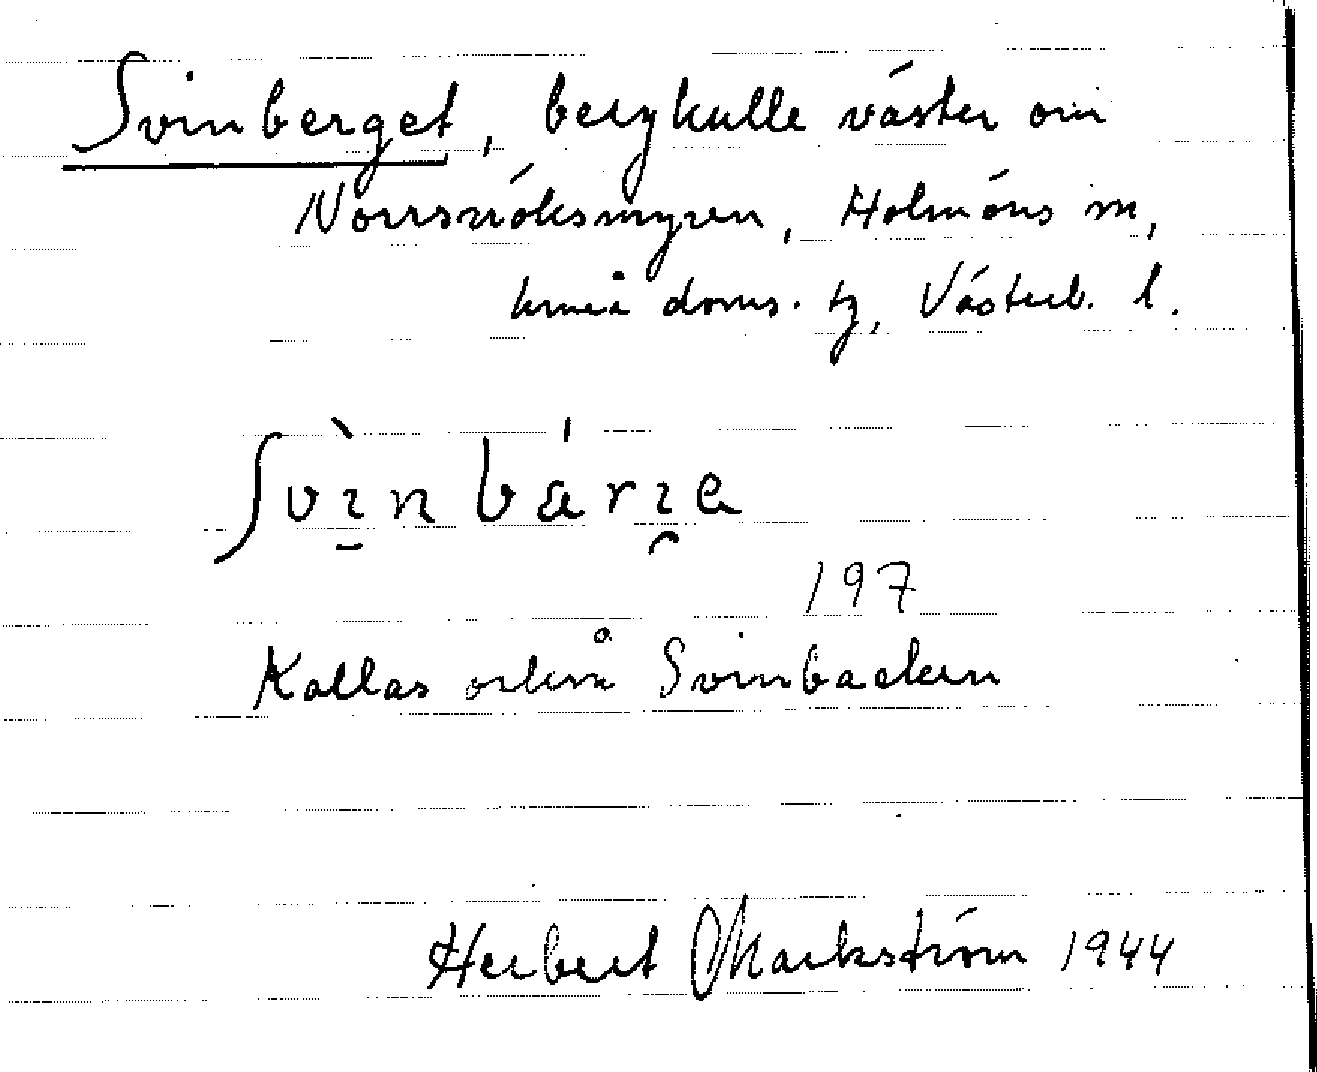 Svinberget, bergkulle väster om
Norrsvöksmyren, Holmöns sn,
Umeå doms. tg, Västerb. l.
ʃvìnbárɪe
197
Kallas också Svinbacken
Herbert Markström 1944